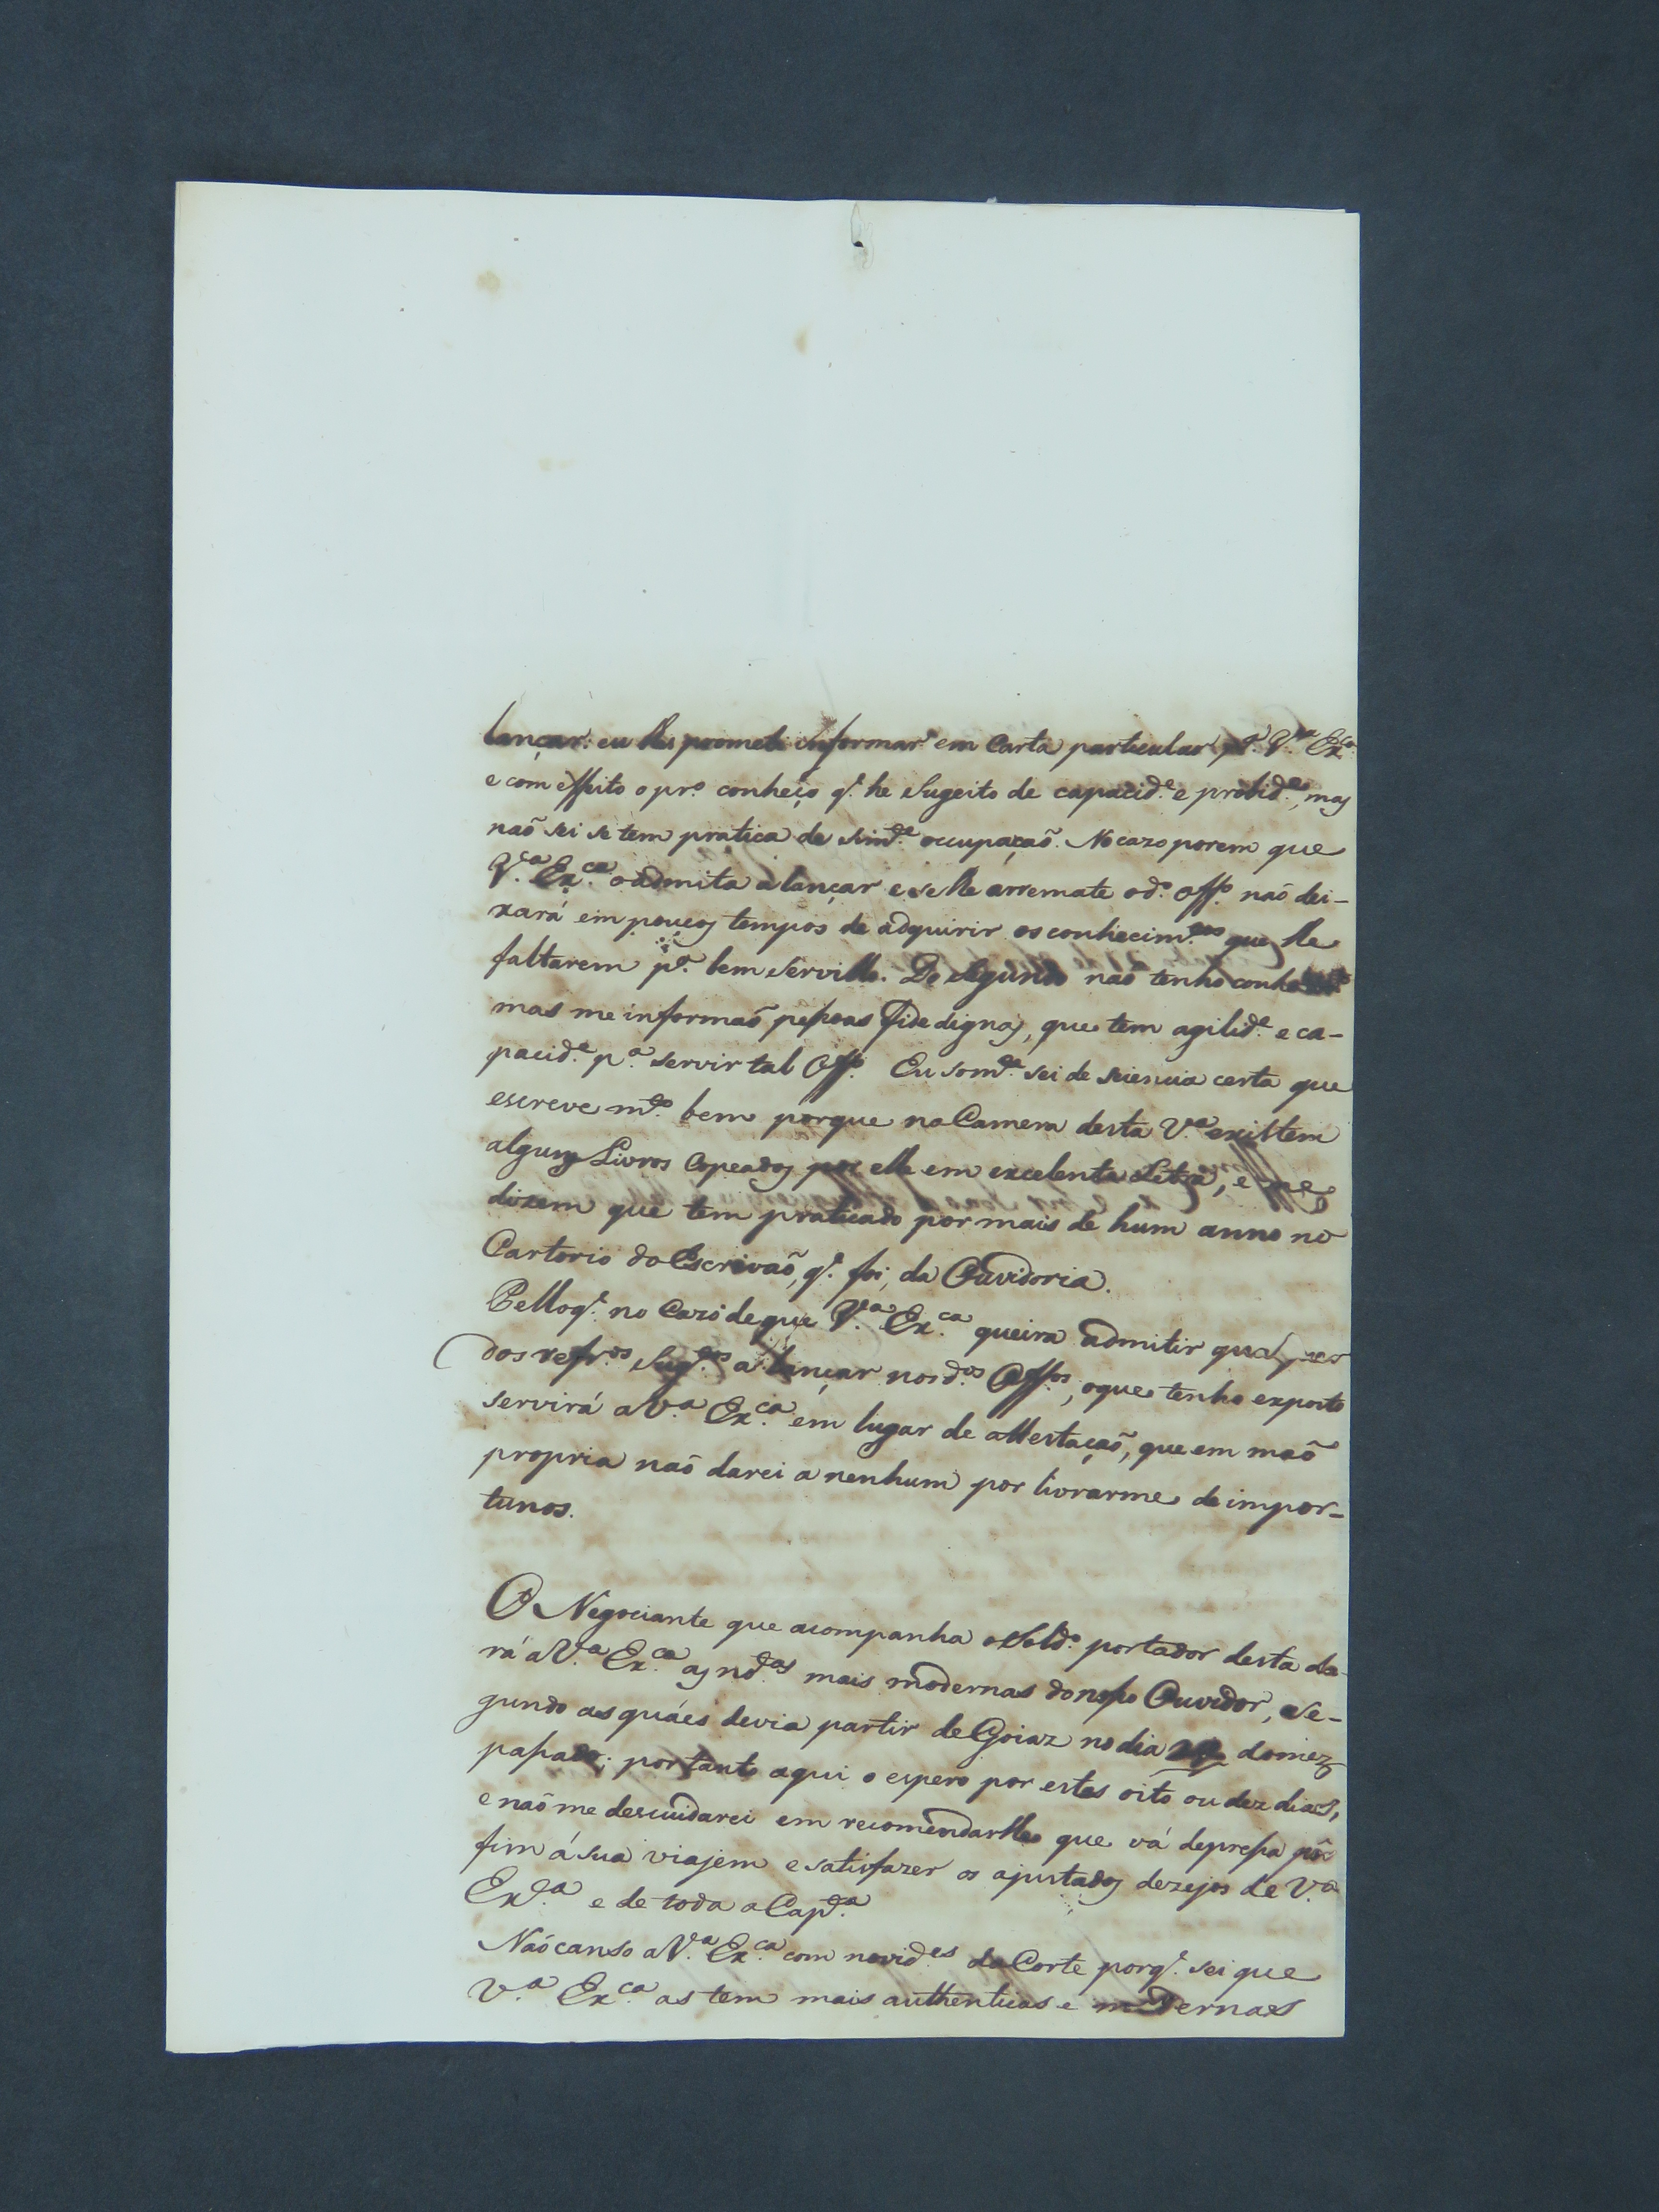 lançar: eu lhes prometi informar em Carta particular p.ª V.ª Ex.ca
e com effeito o pr.º conheço q.' he sugeito de capacid.e e probid.e, mas
naõ sei se tem pratica de sim.e occupaçaõ. No cazo porem que
V.ª Ex.ca o admita a lançar e se lhe arremate o d.º Off.º naõ dei-
xará em poucos tempos de adquirir os conhecim.tos que lhe
faltarem p.ª bem servillo. Do segundo naõ tenho
mas me informaõ pessoas fidedignas, que tem agilid.e e ca-
pacid.e p.ª servir tal Off.º Eu som.te sei de sciencia certa que
escreve m.to bem porque na Camera desta V.ª existem
alguns Livros copeados por elle em excelente Letra, e me
dizem que tem praticado por mais de hum anno no
Cartorio do Escrivaõ, q.' foi, da Ouvidoria.
Pello q.' no Cazo de que V.ª Ex.ca queira admitir qualquer
dos refr.os sug.tos a lançar nos d.os Off.os, o que tenho exposto
servirá a V.ª Ex.ca em lugar de attestaçaõ, que em maõ
propria naõ darei a nenhum por livrarme de impor-
tunos.
O Negociante que acompanha o Sold.º portador desta da-
rá a V.ª Ex.ca as not.as mais modernas do nosso Ouvidor, se-
gundo as quáes devia partir de Goiaz no dia do mez
passado; portanto aqui o espero por estes oito ou dez dias,
e naõ me descuidarei em recomendarlhe que vá depressa pôr
fim á sua viajem e satisfazer os ajustados dezejos de V.ª
Ex.ca e de toda a Cap.ª
Naõ canso a V.ª Ex.ca com novid.es da Corte porq.' sei que
V.ª Ex.ca as tem mais authenticas e modernas